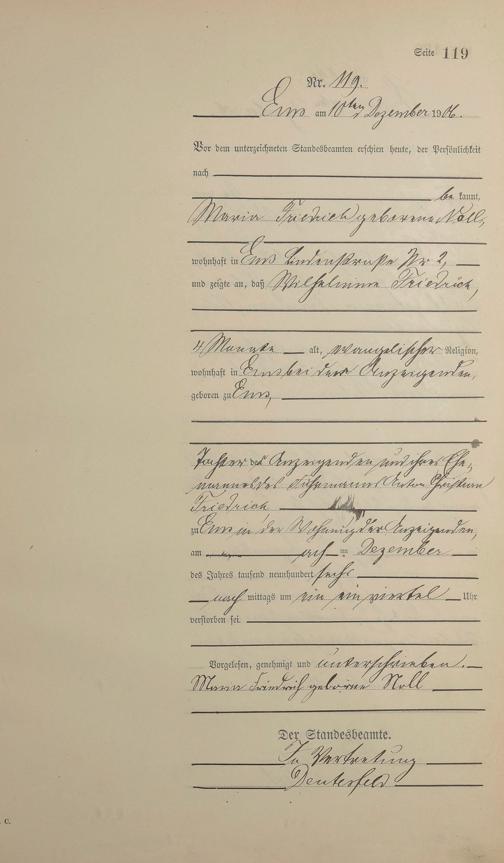 Seite 119
Nr. 119.
Ems am 10ten Dezember 1906.
Vor dem unterzeichneten Standesbeamten erschien heute, der Persönlichkeit
nach
be kannt,
Maria Friedrich geborene Noll,
wohnhaft in Ems Lindenstraße Nr 2,
und zeigte an, daß Wilhelmine Friedrich,
4 Monate alt, evangelischer Religion,
wohnhaft in Ems bei der Anzeigenden,
geboren zu Ems,
Tochter der Anzeigenden und ihres Ehe-
mannes des Anton Christian
Friedrich
zu Ems in der Wohnung der Anzeigenden,
am acht Dezember
des Jahres tausend neunhundert sechs
nach mittags um ein ein viertel Uhr
verstorben sei.
Vorgelesen, genehmigt und unterschrieben.
Maria Friedrich geborne Noll
Der Standesbeamte.
In Vertretung
C.